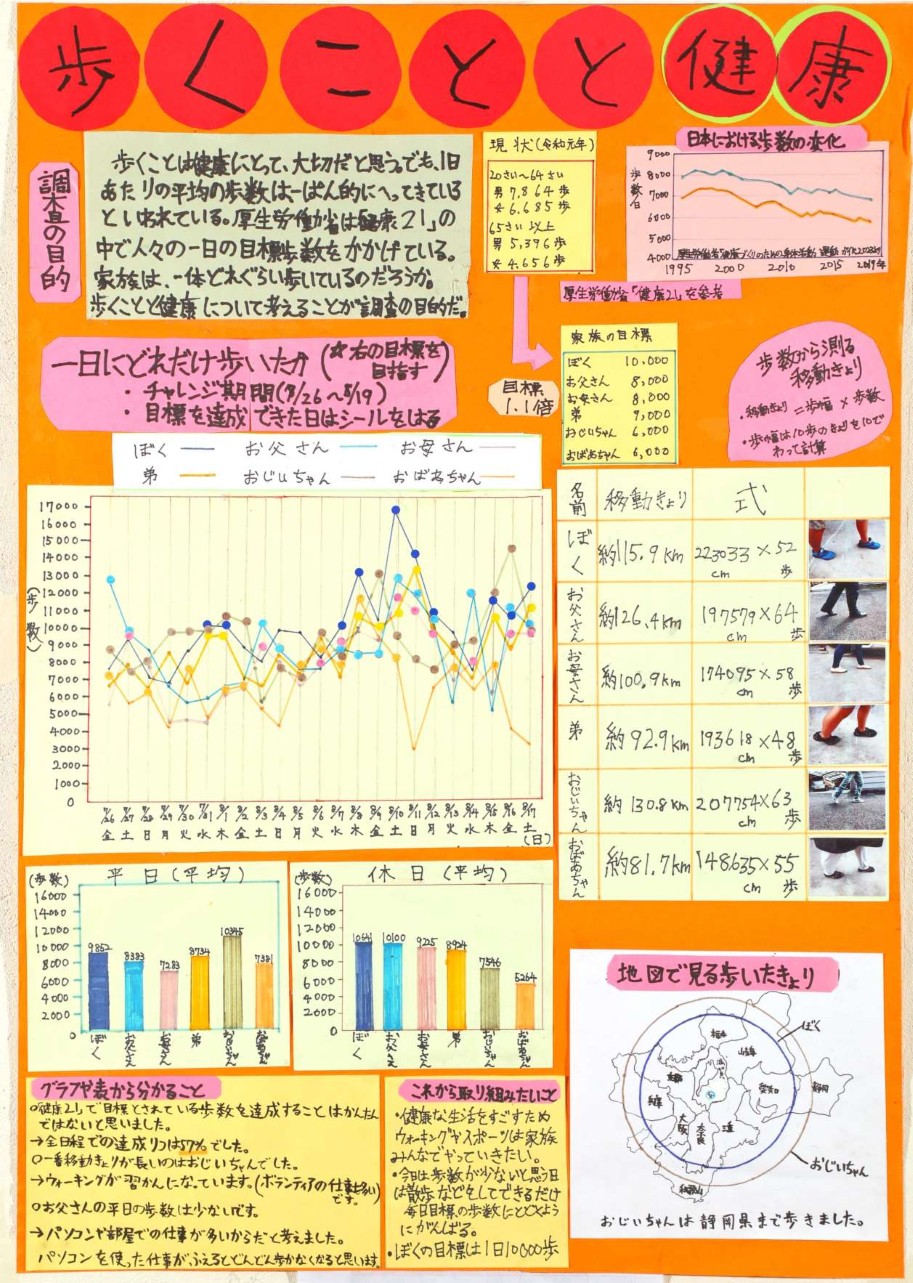 歩くことと健康
調査の目的
歩くことは健康にとって、大切だと思う。でも、1日
あたりの平均の歩数は一ぱん的にへってきている
といわれている。厚生労働省は「健康21」の
中で人々の一日の目標歩数をかかげている。
家族は、一体どれぐらい歩いているのだろうか。
歩くことと健康について考えることが調査の目的だ。
現状(令和元年)
20さい〜64さい
男 7,864歩
女 6,685歩
65さい以上
男 5,396歩
女 4,656歩
日本における歩数の変化
歩数/日
9000
8000
7000
6000
5000
4000
1995 2000 2010 2015 2019年
厚生労働省「健康21」を参考
一日にどれだけ歩いたか(☆右の目標を目指す)
・チャレンジ期間(7/26〜8/19)
・目標を達成できた日はシールをはる
目標
1.1倍
家族の目標
ぼく 10,000
お父さん 8,000
お母さん 8,000
弟 9,000
おじいちゃん 6,000
おばあちゃん 6,000
歩数から測る
移動きょり
・移動きょり=歩幅×歩数
・歩幅は10歩のきょりを10で
わって計算
ぼく お父さん お母さん
弟 おじいちゃん おばあちゃん
(歩数)
17000
16000
15000
14000
13000
12000
11000
10000
9000
8000
7000
6000
5000
4000
3000
2000
1000
0
金 土 日 月 火 水 木 金 土 日 月 火 水 木 金 土 日 月 火 水 木 金 土
(日)
名前 移動きょり 式
ぼく 約115.9km 223033cm×52歩
お父さん 約126.4km 197579cm×64歩
お母さん 約100.9km 174095cm×58歩
弟 約92.9km 193618cm×48歩
おじいちゃん 約130.8km 207754cm×63歩
おばあちゃん 約81.7km 148635cm×55歩
(歩数) 平日(平均)
16000
14000
12000
10000
8000
6000
4000
2000
0
9852 8383 7283 8734 10345 7381
ぼく お父さん お母さん 弟 おじいちゃん おばあちゃん
(歩数) 休日(平均)
16000
14000
12000
10000
8000
6000
4000
2000
0
10641 10100 9225 8924 7546 5264
ぼく お父さん お母さん 弟 おじいちゃん おばあちゃん
地図で見る歩いたきょり
ぼく
福井
岐阜
滋賀
京都
兵庫
愛知
静岡
大阪
奈良
三重
和歌山
おじいちゃん
おじいちゃんは静岡県まで歩きました。
グラフや表から分かること
○健康21」で目標とされている歩数を達成することはかんたん
ではないと思いました。
→全日程での達成りつは57%でした。
○一番移動きょりが長いのはおじいちゃんでした。
→ウォーキングが習かんになっています。(ボランティアの仕事も多いです。)
○お父さんの平日の歩数は少ないです。
→パソコンや部屋での仕事が多いからだと考えました。
パソコンを使った仕事がふえるとどんどん歩かなくなると思います。
これから取り組みたいこと
・健康な生活をすごすため
ウォーキングやスポーツは家族
みんなでやっていきたい。
・今日は歩数が少ないと思う日
は散歩などをしてできるだけ
毎日目標の歩数にとどくよう
にがんばる。
・ぼくの目標は1日10000歩